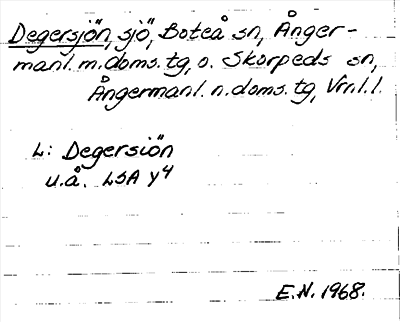 Degersjön, sjö, Boteå sn, Ånger-
manl. m. doms. tg, o. Skorpeds sn,
Ångermanl. n. doms. tg, Vrnl. l.
L: Degersiön
u.å. LSA Y4
E.N. 1968.